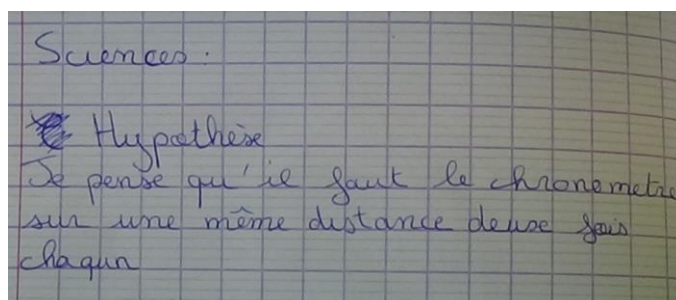 Sciences :
Hypothèse
Je pense qu'il faut le chronometre
sur une même distance deuxe fois
chaqun